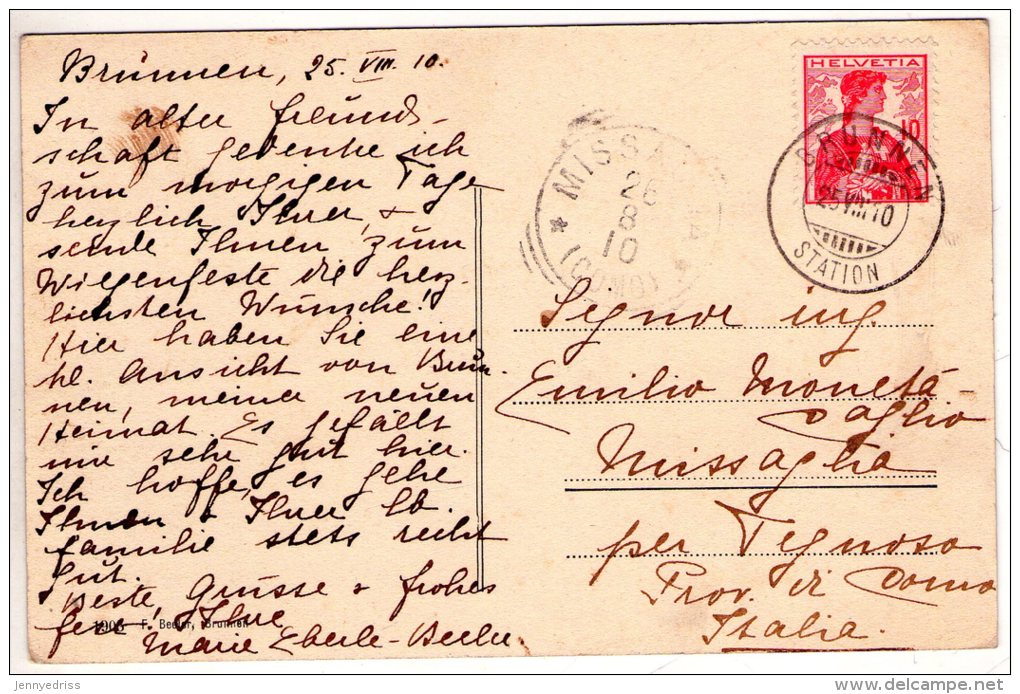 Brunnen, 25. VIII. 10.
In alter Freund-
schaft gedenke ich
zum morgigen Tage
herzlich Ihrer, &
sende Ihnen zum
Wiegenfeste die herz-
lichsten Wünsche!
Hier haben Sie eine
kl. Ansicht von Brun-
nen, meiner neuen
Heimat. Es gefällt
mir sehr gut hier.
Ich hoffe, es gehe
Ihnen & Ihrer lb.
Familie stets recht
gut.
Beste Grüsse & frohes
Fest! Ihre
Marie Eberle-Beeler
F. Beeler, Brunnen
HELVETIA
10
BRUNNEN
25 VIII 10
STATION
26
8
10
(COMO)
Signor ing.
Emilio Moneta-
Caglio
Missaglia
per Tegnoso
Prov. di Como
Italia.
jennyedriss
www.delcampe.net